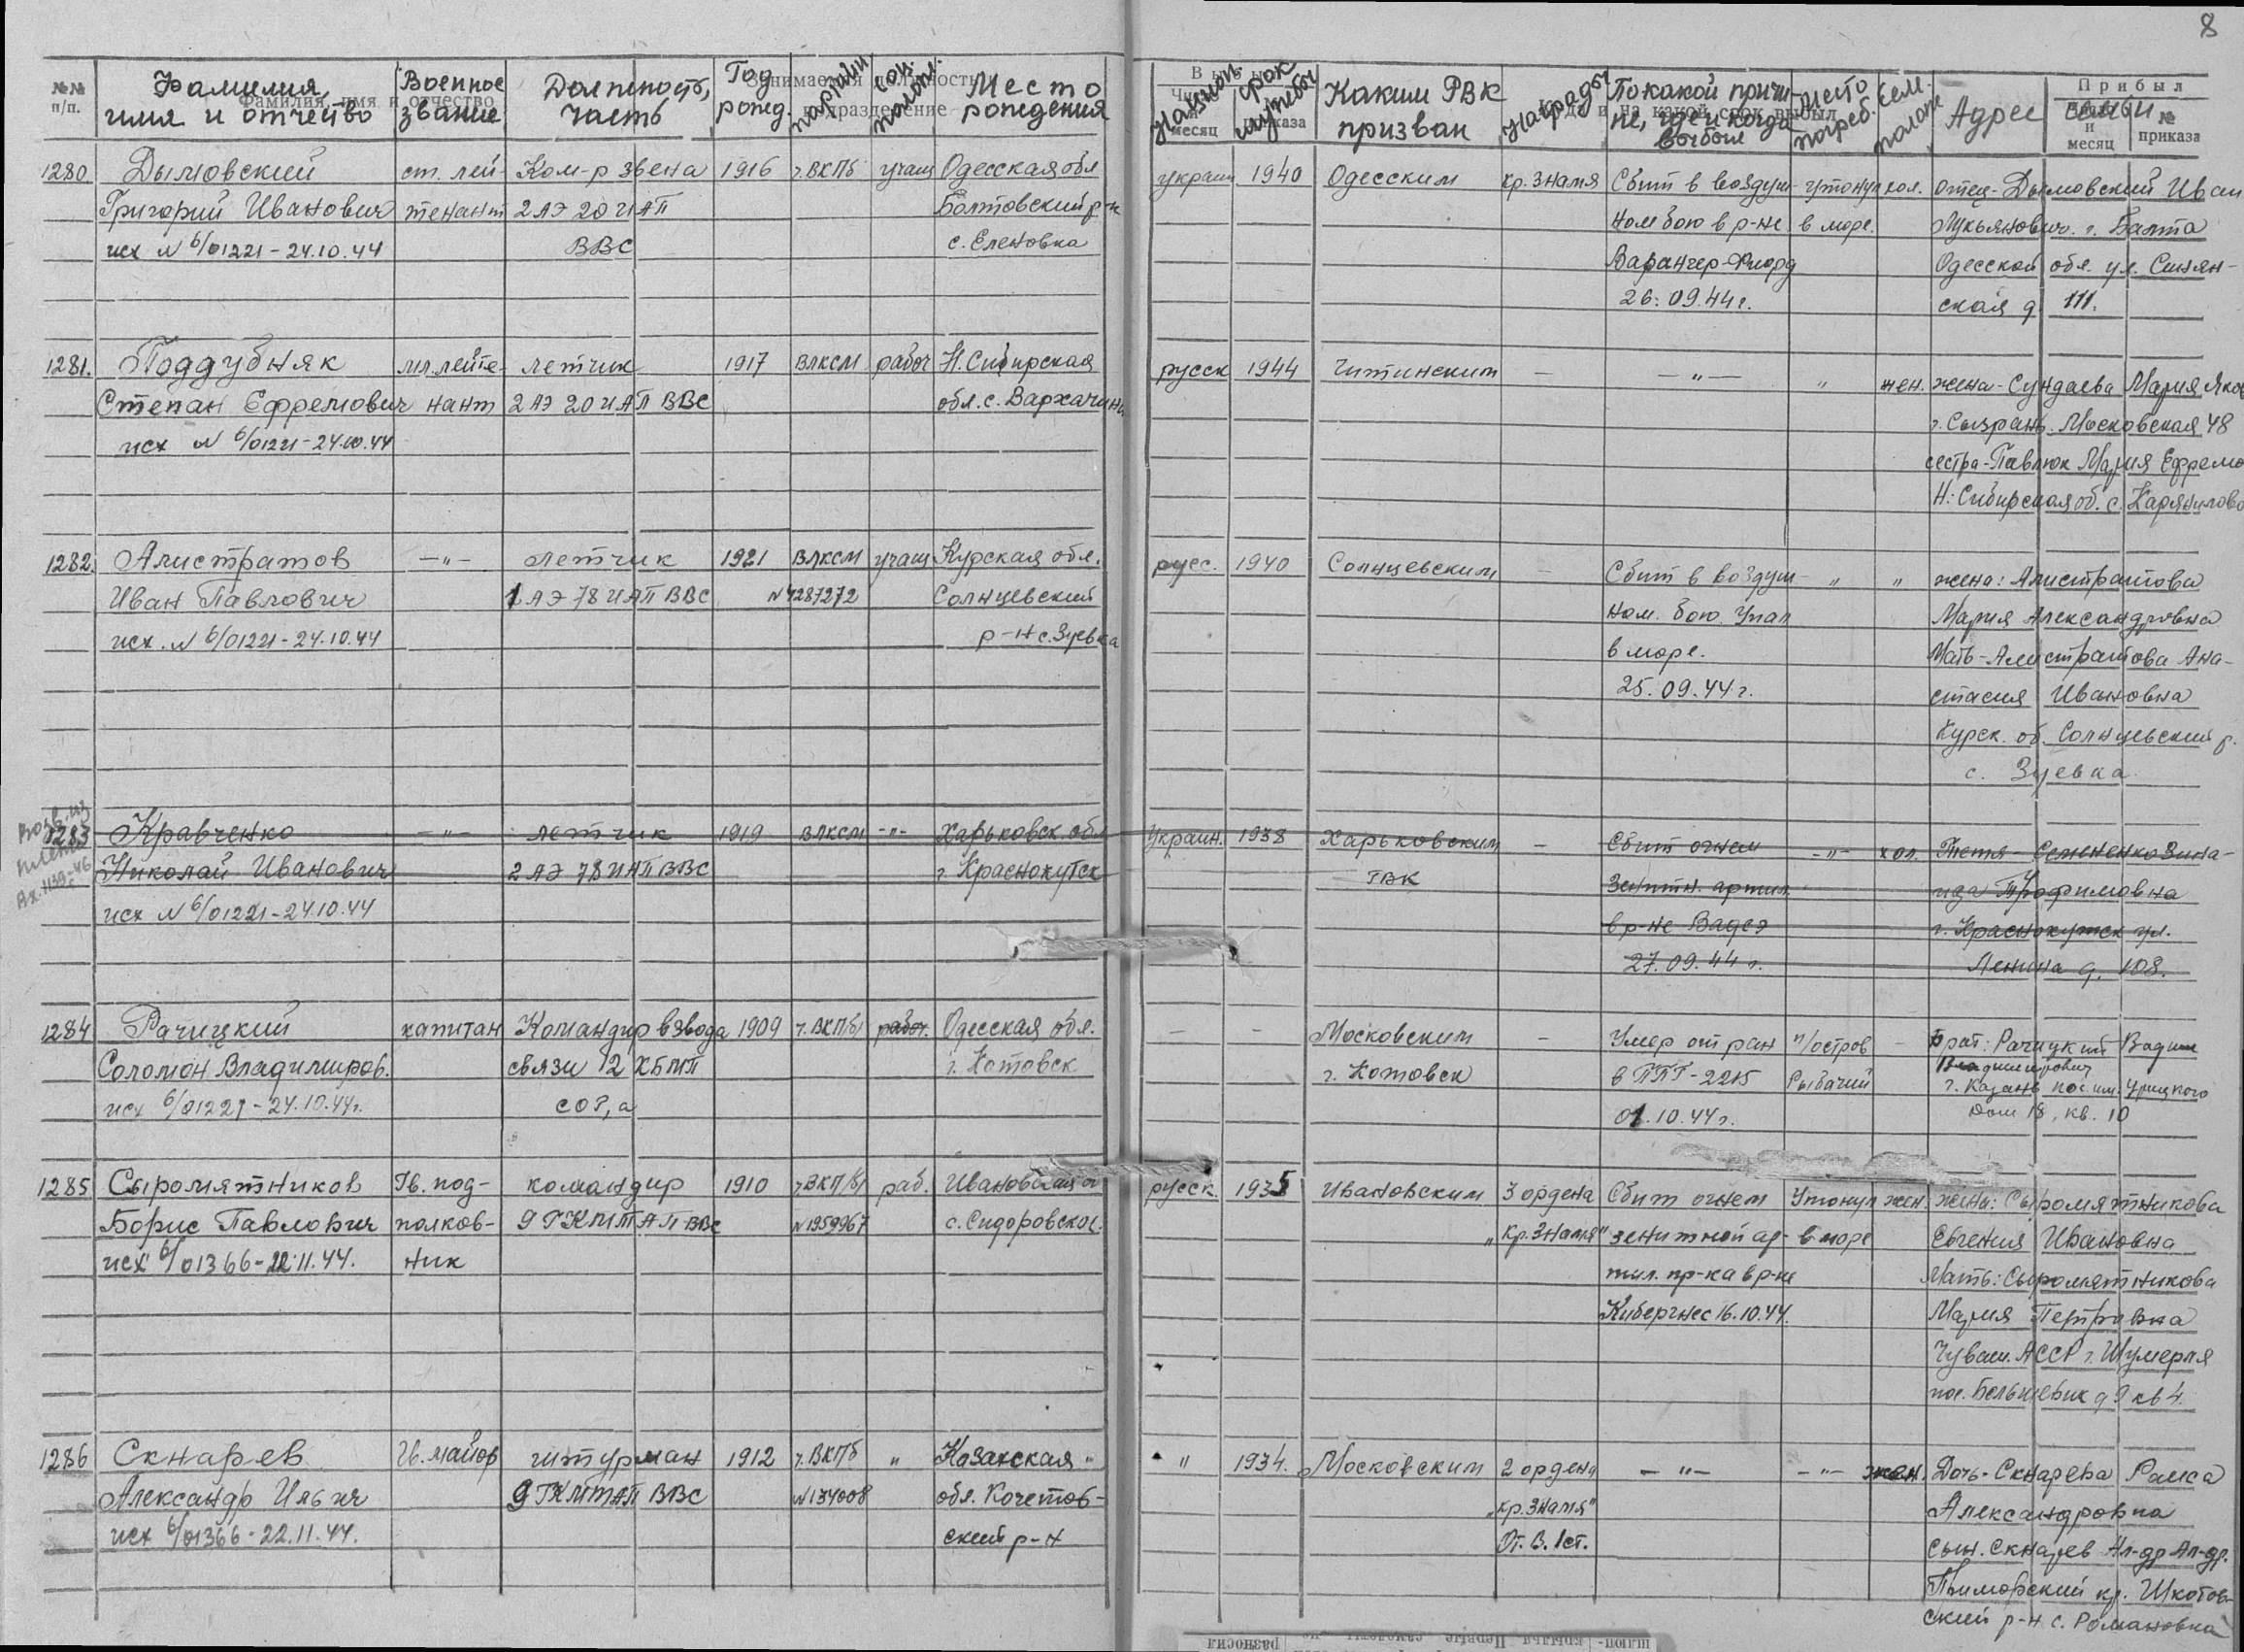 8
№№ п/п.
Фамилия, имя и отчество
Военное звание
Должность, часть
Год рожд.
партийн
соц. полож.
Место рождения
Национ.
срок службы
Каким РВК призван
Награды
По какой причине, где и когда выбыл
Место погреб.
Сем. полож
Адрес семьи
1280 Дымовский ст. лей- Ком-р звена 1916 ч.ВКПб учащ Одесская обл украин 1940 Одесским кр. Знамя Сбит в воздуш- утонул хол. отец-Дымовский Иван
Григорий Иванович тенант 2 АЭ 20 ИАП Болтовский р-н ном бою в р-не в море. Лукьянович. г. Балта
исх N б/01221-24.10.44 ВВС с. Еленовка Варангер-Фиорд Одесской обл. ул. Синян-
26.09.44г. ская д. 111.
1281. Поддубняк мл. лейте- летчик 1917 ВЛКСМ рабоч Н.Сибирская русск 1944 Читинским — —"— " жен. жена-Сундаева Мария Яков
Степан Ефремович нант 2 АЭ 20 ИАП ВВС обл. с. Вархачини г. Сызрань. Московская 48
исх N б/01221-24.10.44 сестра-Павлюк Мария Ефремо
Н.Сибирская об. с.
1282. Алистратов —"— летчик 1921 ВЛКСМ учащ Курская обл. русс. 1940 Солнцевским — Сбит в воздуш- " " жена: Алистратова
Иван Павлович 1 АЭ 78 ИАП ВВС N4287272 Солнцевский ном. бою. Упал Мария Александровна
исх. N б/01221-24.10.44 р-н с. Зуевка в море. Мать-Алистратова Ана-
25.09.44г. стасия Ивановна
Курск. об. Солнцевский р.
с. Зуевка
Возв. из
1283 Кравченко —"— летчик 1919 ВЛКСМ -"- Харьковск. обл Украин. 1938 Харьковским — Сбит огнем -"- хол. Тетя-Семененко Зина-
плена
Николай Иванович 2 АЭ 78 ИАП ВВС г. Краснокутск ГВК зенитн. артил. ида Трофимовна
Вх. 1139с-46
исх N б/01221-24.10.44 в р-не Вадсэ г. Краснокутск ул.
27.09.44г. Ленина д. 108.
1284 Рачицкий капитан Командир взвода 1909 ч.ВКП/б/ рабоч. Одесская обл. — — Московским — Умер от ран п/остров — Брат: Рачицкий Вадим
Соломон Владимиров. связи 12 КБМП г. Котовск г. Котовск в ППГ-2215 Рыбачий Владимирович
исх б/01221-24.10.44г. СОР,а 01.10.44г. г. Казань пос. им. Урицкого
Дом 18, кв. 10
1285 Сыромятников Гв. под- командир 1910 ч.ВКП/б/ раб. Ивановская об русск. 1935 Ивановским 3 ордена Сбит огнем Утонул жен. жена: Сыромятникова
Борис Павлович полков- 9 ГКМТАП ВВС N1959967 с. Сидоровское. "кр. Знамя" зенитной ар- в море Евгения Ивановна
исх б/01366-22.11.44. ник тил. пр-ка в р-не Мать: Сыромятникова
Кибергнес 16.10.44. Мария Петровна
Чуваш. АССР г. Шумерля
пос. Большевик д 9 кв 4.
1286 Скнарев Гв. майор штурман 1912 ч.ВКПб " Казахская " " 1934. Московским 2 ордена —"— —"— жен. Дочь-Скнарева Раиса
Александр Ильич 9 ГКМТАП ВВС N134008 обл. Кочетов- "кр. Знамя" Александровна
исх б/01366-22.11.44. ский р-н От. В. 1ст. Сын. Скнарев Ал-др Ал-др.
Приморский кр. Шкотов-
ский р-н с. Романовка